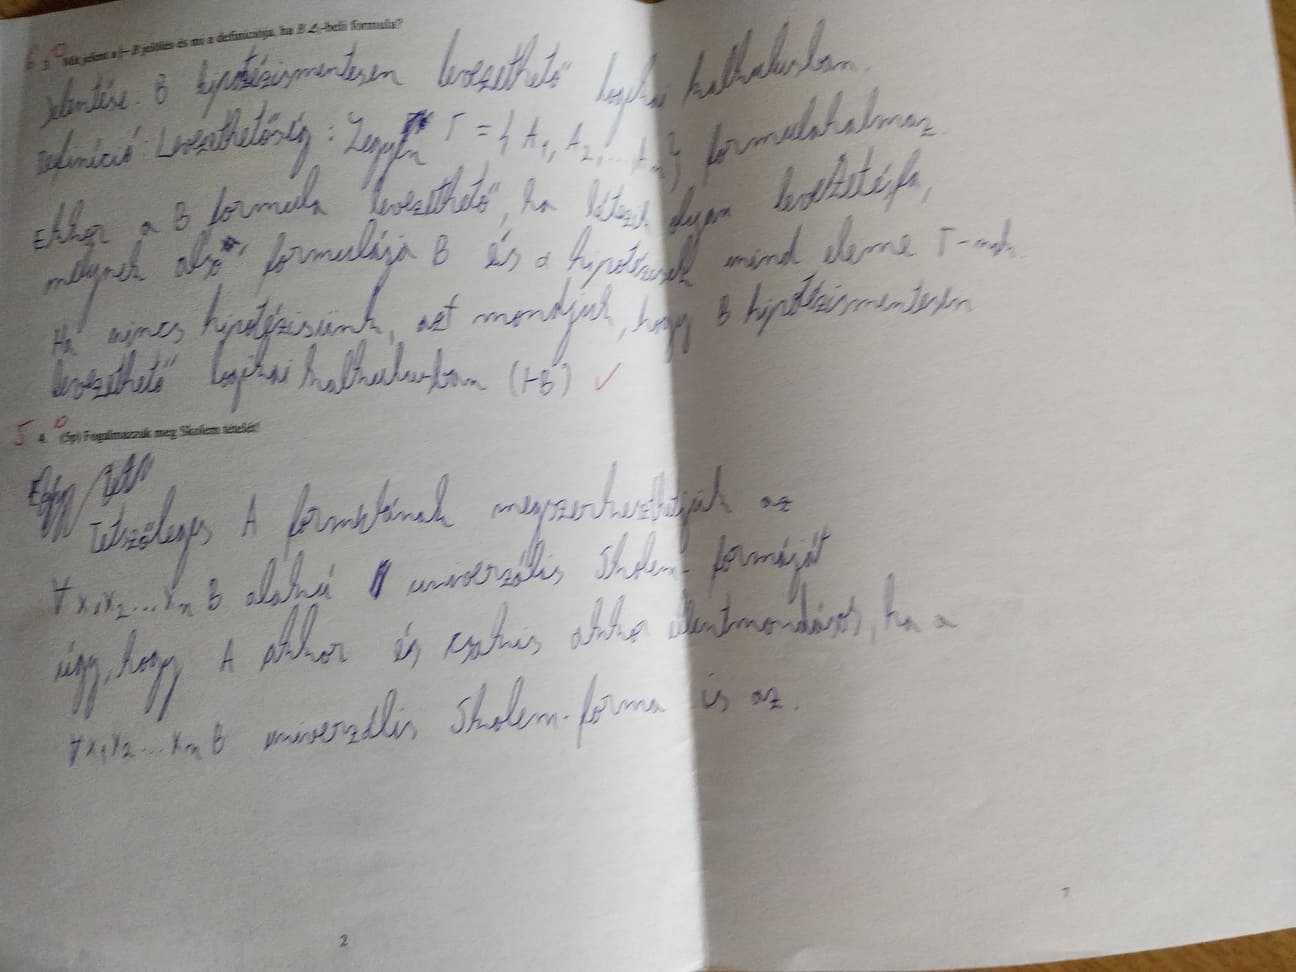 3. Mit jelent a ⊢ B jelölés és mi a definíciója, ha B L₁-beli formula?
Jelentése: B hipotézismentesen levezethető logikai kalkulusban.
Definíció: Levezethetőség: Legyen Γ = { A₁, A₂, ... Aₙ } formulahalmaz
Ekkor a B formula levezethető, ha létezik olyan levezetésfa,
melynek alsó formulája B és a hipotézisek mind eleme Γ-nak.
Ha nincs hipotézisünk, azt mondjuk, hogy B hipotézismentesen
levezethető logikai kalkulusban (⊢B) ✓
5 4. (5p) Fogalmazzuk meg Skolem tételét!
Tetszőleges A formulának megszerkeszthetjük az
∀x₁x₂...xₙ B alakú univerzális Skolem-formáját
úgy, hogy A akkor és csakis akkor ellentmondásos, ha a
∀x₁x₂...xₙ B univerzális Skolem-forma is az.
2
7